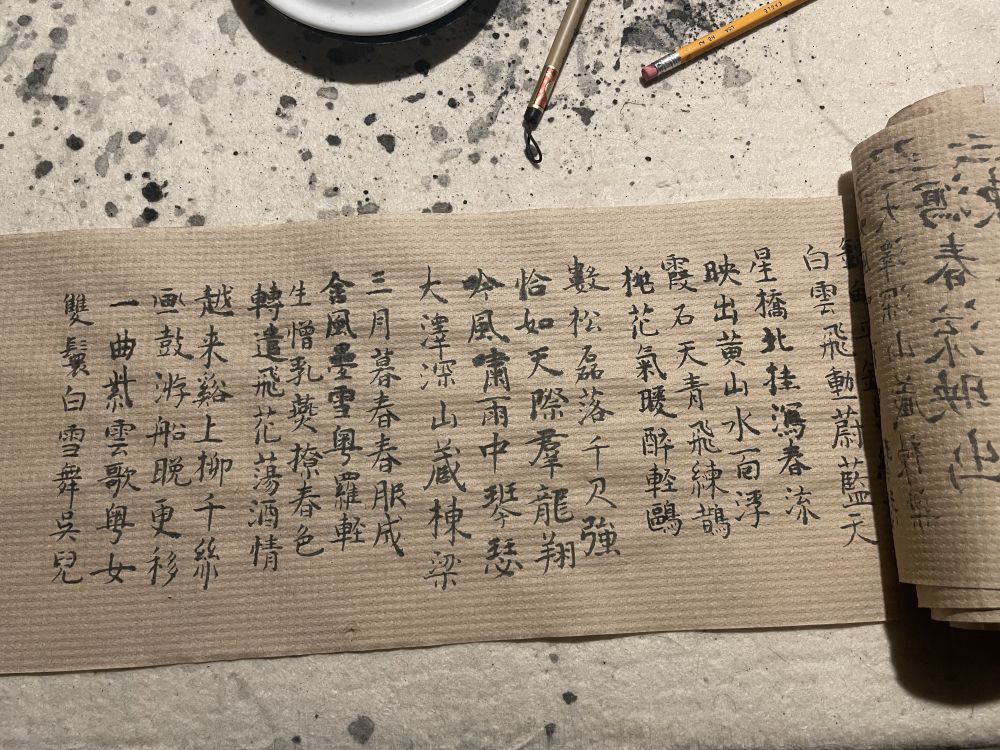 白雲飛動蔚藍天
星橋北挂瀉春流
映出黄山水面浮
霞石天青飛練鵲
桃花氣暖醉軽鷗
數松磊落千尺強
恰如天際羣龍翔
吟風嘯雨中琴瑟
大澤深山蔵棟梁
三月暮春春服成
含風疊雪粤羅軽
生憎乳燕撩春色
轉遣飛花蕩酒情
越来谿上柳千絲
画鼓游船晚更移
一曲紫雲歌粤女
雙鬟白雪舞吳兒